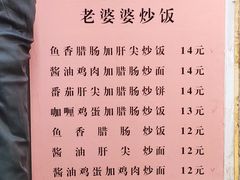 老婆婆炒饭
鱼香腊肠加肝尖炒饭 14元
酱油鸡肉加腊肠炒面 14元
番茄肝尖加腊肠炒饼 14元
咖喱鸡蛋加腊肠炒饭 13元
鱼香腊肠炒饭 12元
酱油肝尖炒面 12元
酱油鸡蛋加鸡肉炒面 12元